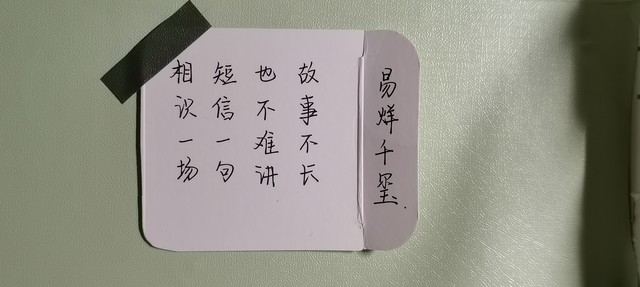 易烊千玺.
故事不长
也不难讲
短信一句
相识一场